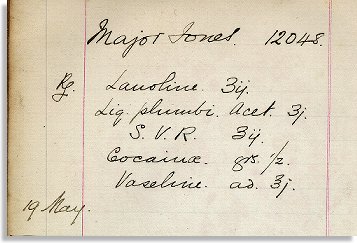 Major Jones. 12048.
Rx. Lanoline. ʒij.
Liq. plumbi. Acet. ʒj.
S. V. R. ʒij.
Cocainæ. grs. 1/2.
Vaseline. ad. ʒj.
19 May.